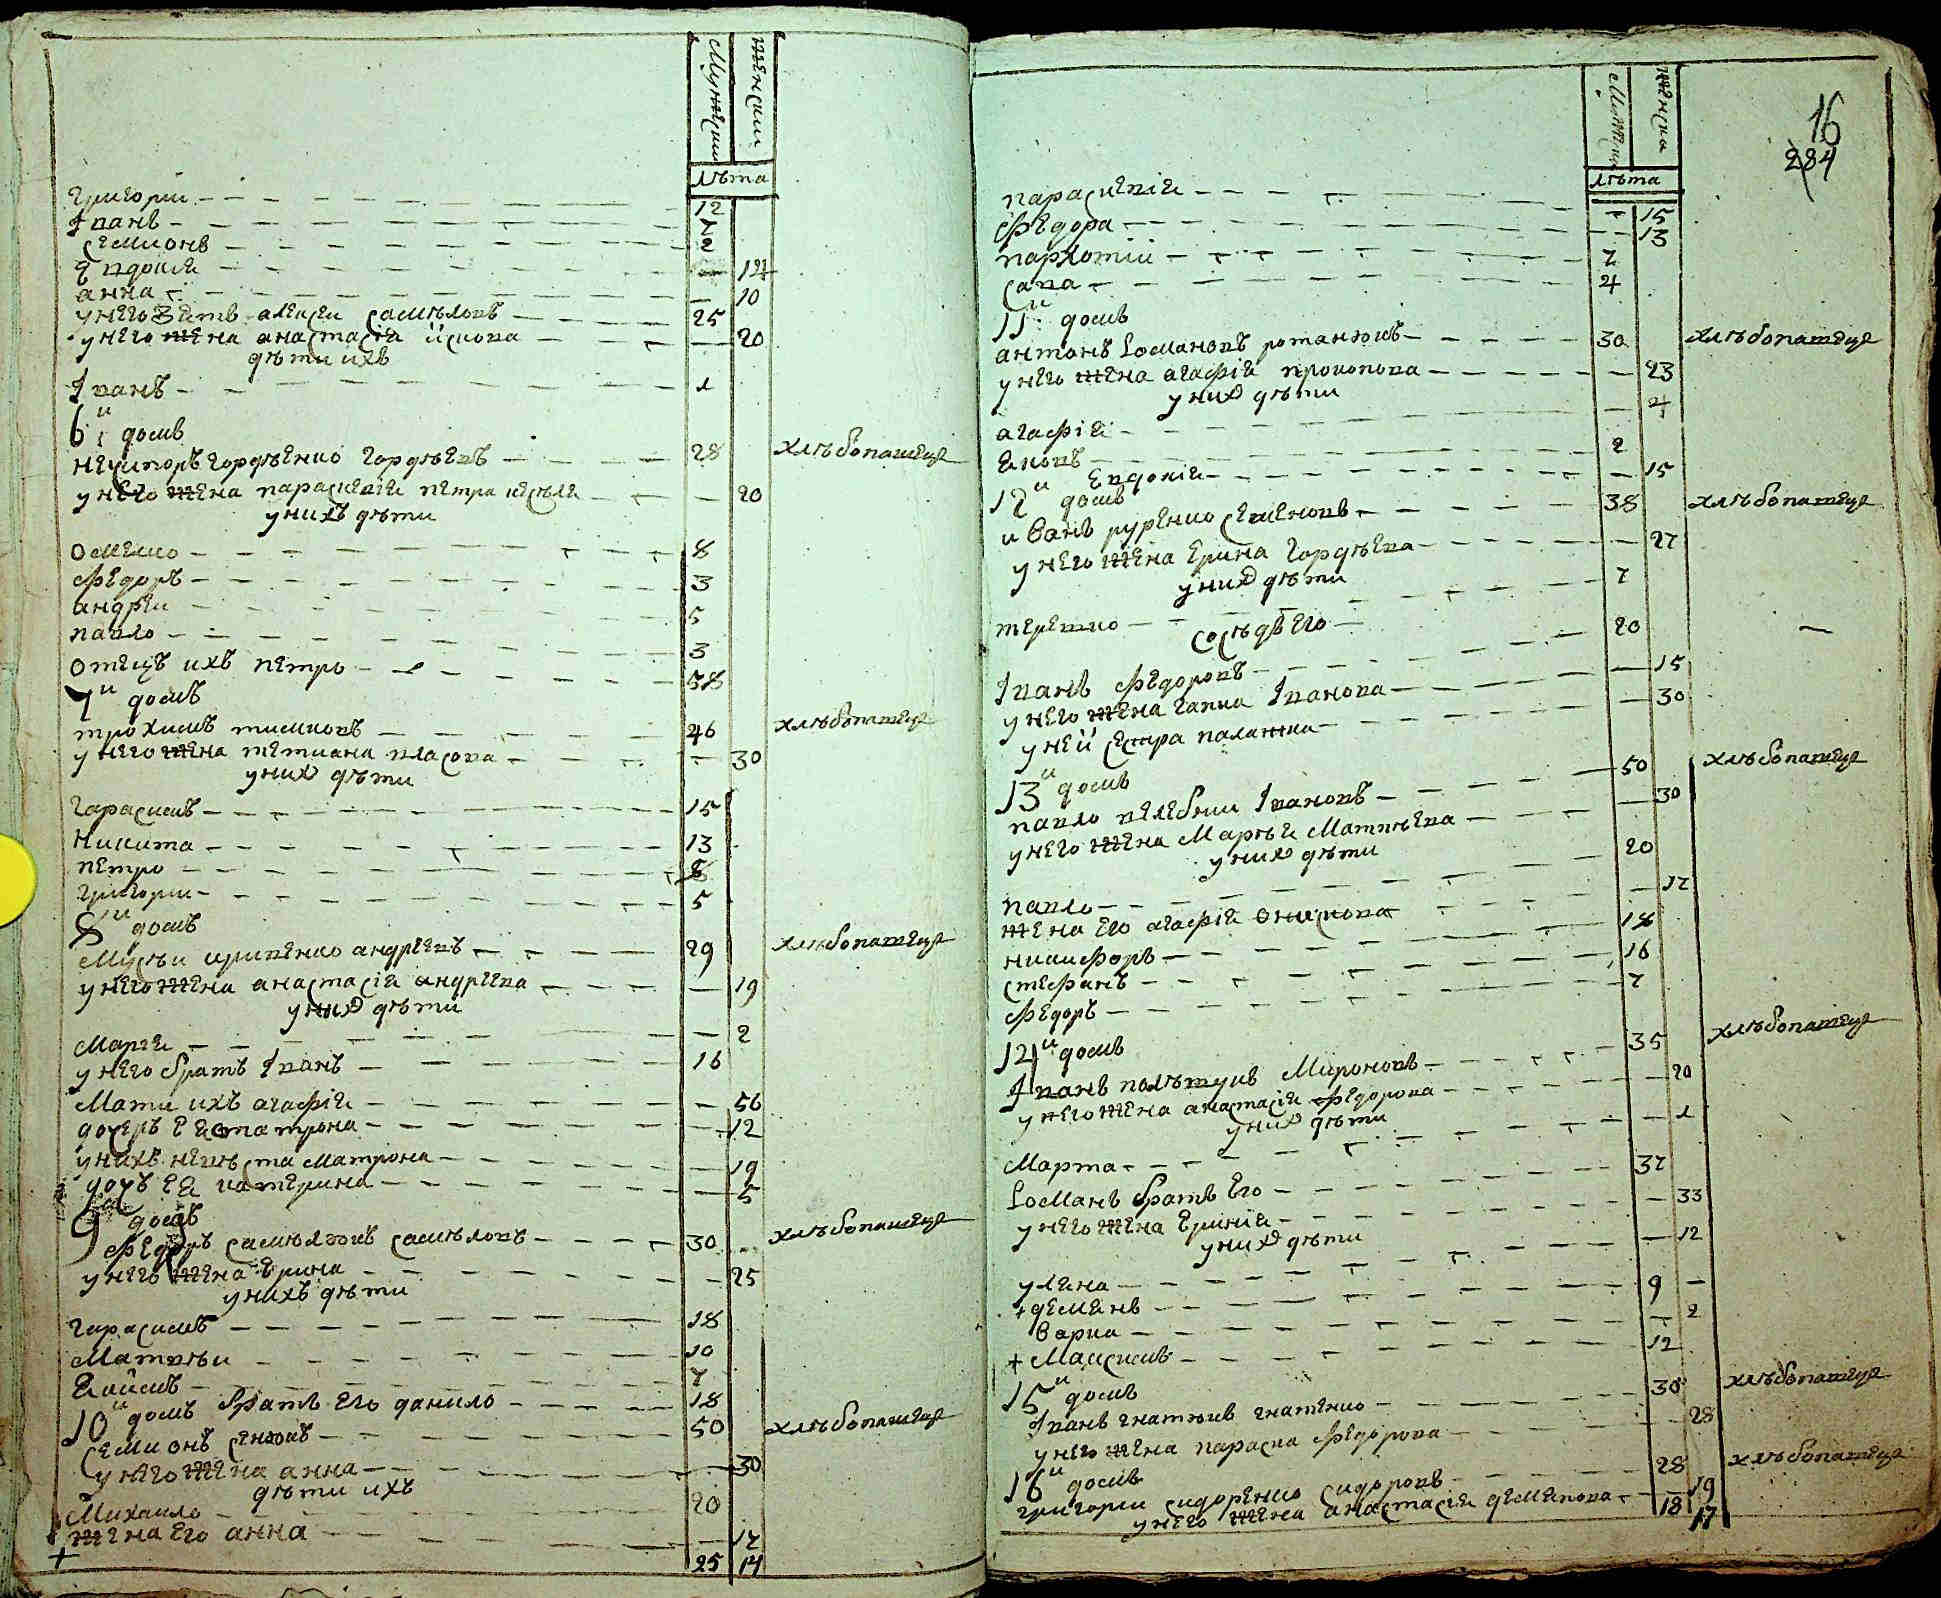 Мужески Женски
лѣта
григории 12
Іванъ 7
Семионъ 2
Евдокия 14
анна 10
у него зять алексеи самѣловъ 25
у него жена анастасія 20
дѣти ихъ
Іванъ 1
6 и домъ
нечипоръ гордѣенко гордѣевъ 28 хлѣбопашецъ
у него жена параскевія петра 20
у нихъ дѣти
омелко 8
Федоръ 3
андреи 5
павло 3
отецъ ихъ петро 58
7 и домъ
трохимъ тимковъ 46 хлѣбопашецъ
у него жена тетиана власова 30
у них дѣти
гарасимъ 15
Никита 13
петро 8
григории 5
8 и домъ
Мусѣи андреевъ 29 хлѣбопашецъ
у него жена анастасія андреева 19
у них дѣти
Марія 2
у него братъ Іванъ 16
Мати ихъ агафія 56
дочеръ ея матрона 12
у нихъ невѣста матрона 19
дочъ ея катерина 5
9 домъ
Федоръ самѣловъ 30 хлѣбопашецъ
у него жена Ерина 25
у нихъ дѣти
гарасимъ 18
Матвѣи 10
Екимъ 7
братъ его данило 18
10 и домъ
Семионъ 50 хлѣбопашецъ
у него жена анна 30
дѣти ихъ
Михаило 20
жена его анна 17
25 14
16
284
Мужески Женска
лѣта
параскевія 15
Федора 13
пархотіи 7
Сава 4
11 и домъ
антонъ романовъ романюкъ 30 хлѣбопашецъ
у него жена агафія прокопова 23
у них дѣти
агафія 4
Яковъ 2
Евдокія 15
12 и домъ
иванъ руренко семеновъ 38 хлѣбопашецъ
у него жена Ерина гордѣева 27
у них дѣти
терешко 7
сосѣдъ его
Іванъ Федоровъ 20
у него жена гапка Іванова 15
у неи сестра палажка 30
13 и домъ
павло Івановъ 50 хлѣбопашецъ
у него жена Марѣя Матвѣева 30
у них дѣти
павло 20
жена его агафія онискова 17
никифоръ 18
стефанъ 16
Федоръ 7
14 и домъ
Іванъ Мироновъ 35 хлѣбопашецъ
у него жена анастасія Федорова 20
у них дѣти
Марта 1
романъ братъ его 37
у него жена Еринія 33
у них дѣти
уляна 12
+ демянъ 9
варка 2
+ Максимъ 12
15 и домъ
Іванъ гнатюкъ гнатенко 30 хлѣбопашецъ
у него жена параска Федорова 28
16 и домъ
григории сидоренко сидоровъ 28 хлѣбопашецъ
у него жена анастасія демянова 19
18 17